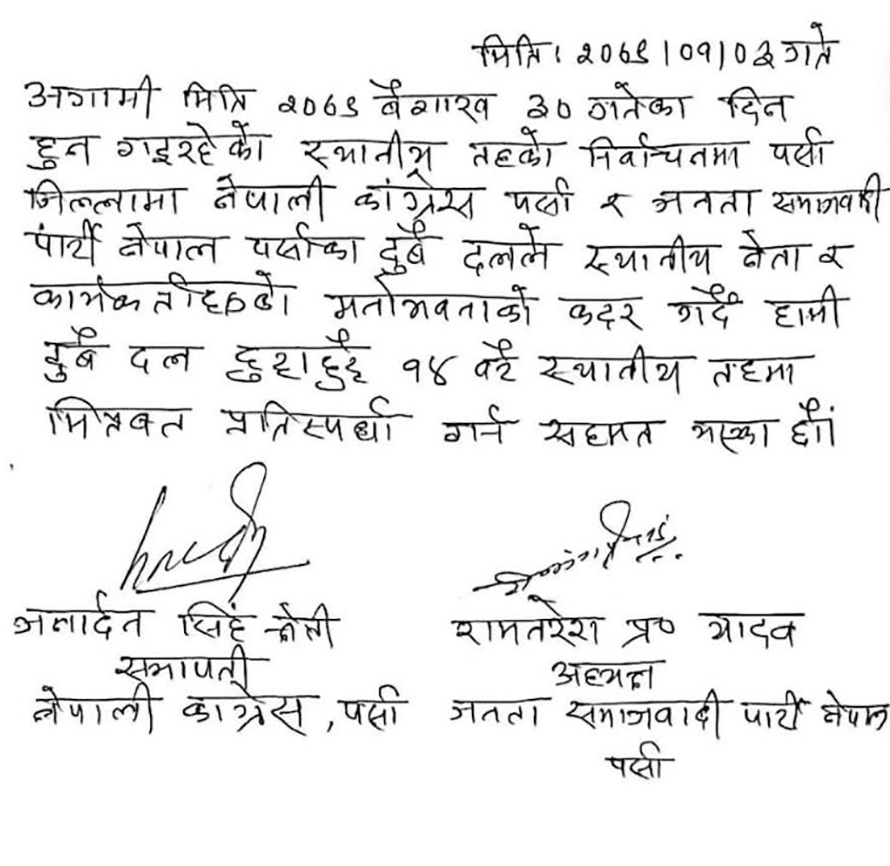 मिति: २०७९।०१।०३ गते
अगामी मिति २०७९ बैशाख ३० गतेका दिन
हुन गइरहेको स्थानीय तहको निर्वाचनमा पर्सा
जिल्लामा नेपाली कांग्रेस पर्सा र जनता समाजवादी
पार्टी नेपाल पर्साका दुबै दलले स्थानीय नेता र
कार्यकर्ताहरुको मनोभवनाको कदर गर्दै हामी
दुबै दल छुट्टाछुट्टै १४ वटै स्थानीय तहमा
मित्रवत प्रतिस्पर्धा गर्न सहमत भएका छौं
जनार्दन सिंह क्षेत्री
सभापती
नेपाली कांग्रेस, पर्सा
रामनरेश प्र० यादव
अध्यक्ष
जनता समाजवादी पार्टी नेपाल
पर्सा